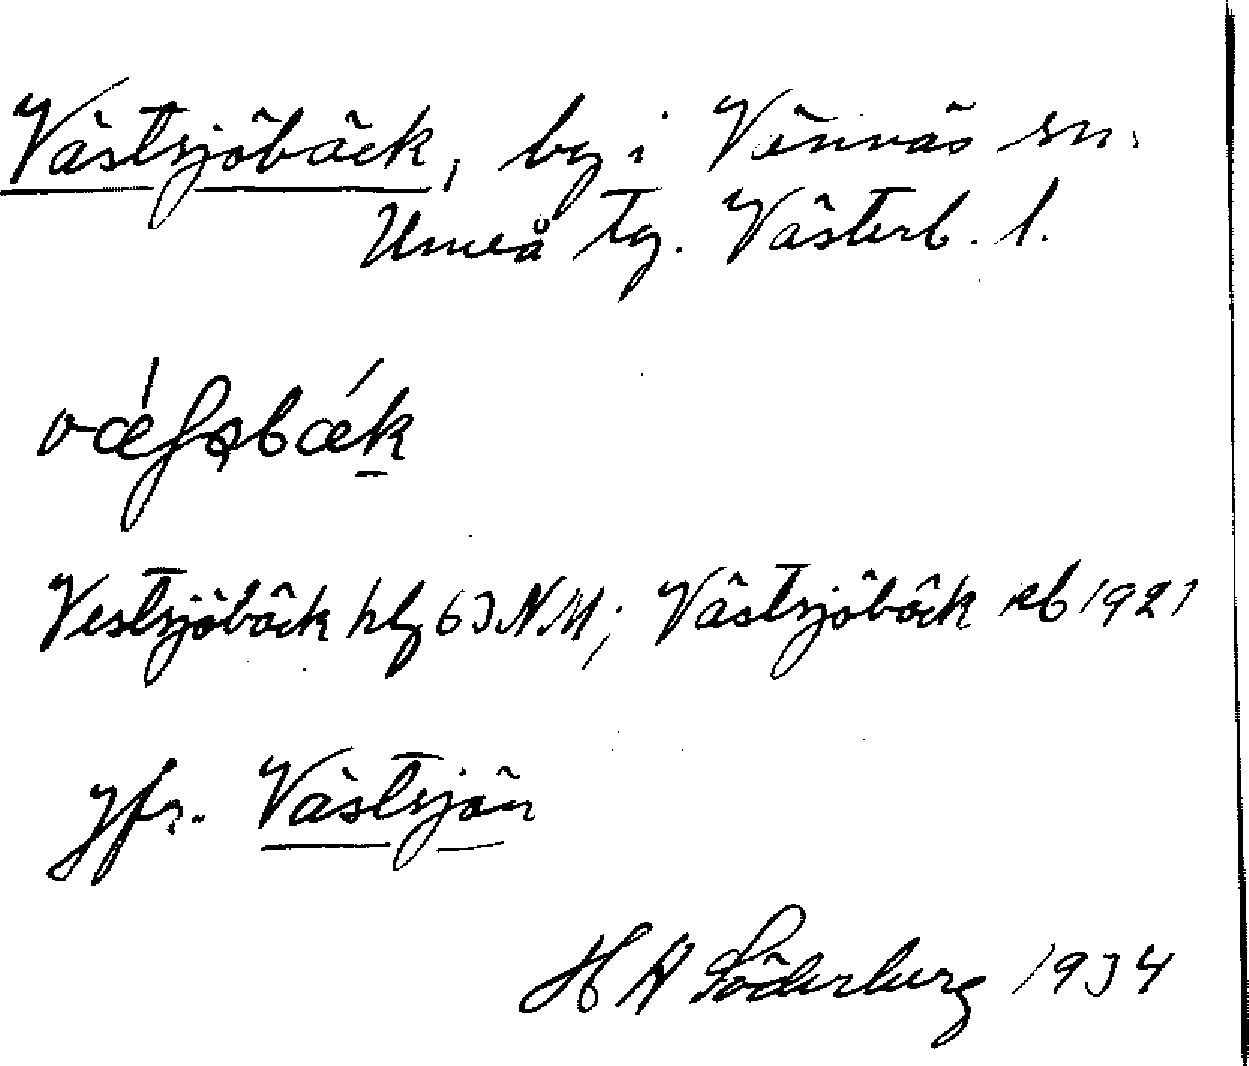 Västsjöbäck, by i Vännäs sn.
Umeå tg. Västerb. l.
Vestsjöbäck hlg 63 NM; Västsjöbäck rb 1921
Jfr. Västsjön
H A Söderberg 1934